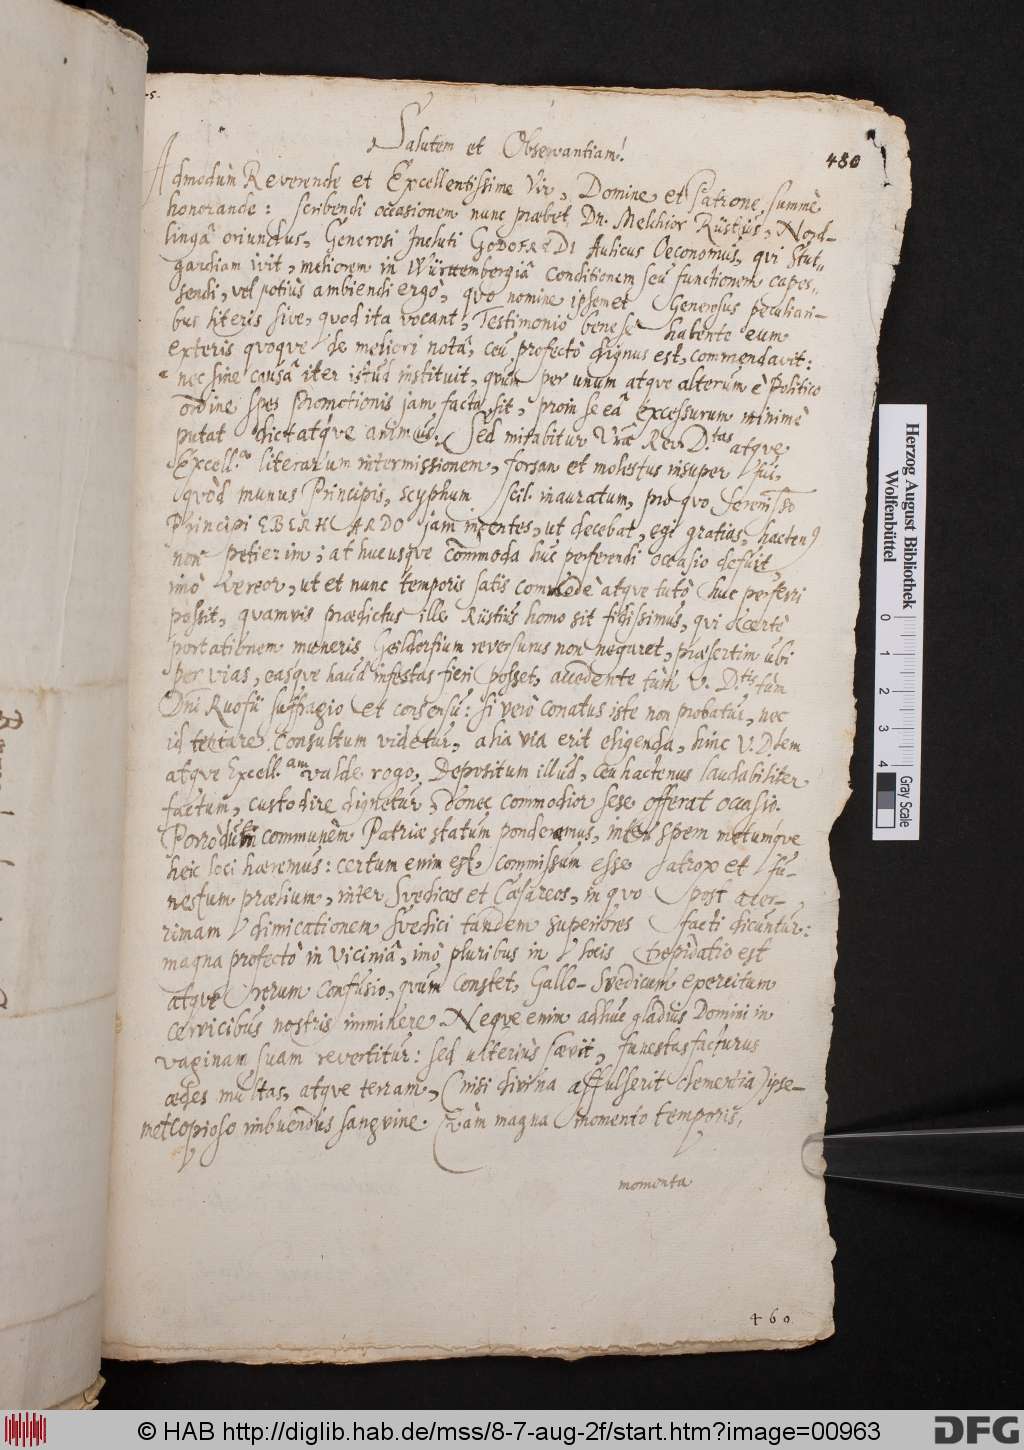 Salutem et Observantiam!
480
Admodùm Reverende et Excellentissime Vir, Domine et Patrone, summè
honorande: scribendi occasionem nunc præbet Dn. Melchior Rüstius, Nord-
lingâ oriundus, Generosi Incluti GODOFREDI Aulicus Oeconomus, qui Stut-
gardiam ivit, meliorem in Würtembergiâ conditionem seu functionem capes-
sendi, vel potiùs ambiendi ergò, quo nomine ipsemet Generosus peculiari-
bus literis sive, quod ita vocant, Testimonio bene se habente eum
exteris quoque de meliori notâ, ceu profectò dignus est, commendavit:
nec sine causâ iter istud instituit, quùm per unum atque alterum è Politico
ordine spes promotionis jam facta sit, proin se eâ excessurum minimè
putat dictatque animus. Sed mirabitur Vrã Rev. D.tas atque
Excell.a literarum intermissionem, forsan et molestus insuper fui,
quòd munus Principis, scyphum scil. inauratum, pro quo Serenisso
Principi EBERHARDO jam ingentes, ut decebat, egi gratias, hacten9
non petierim; at hucusque commoda huc perferendi occasio defuit,
imò vereor, ut et nunc temporis satis commodè atque tutò huc perferri
possit, quamvis prædictus ille Rüstius homo sit fidissimus, qui certè
portationem muneris Geildorfium reversurus non negaret, præsertim ubi
per vias, easque haud infestas fieri posset, accedente tùm V. D.tis tùm
Dni Ruofii suffragio et consensu: si verò conatus iste non probatur, nec
id tentare consultum videtur, alia via erit eligenda, hinc V. D.tem
atque Excell.am valde rogo, Depositum illud, ceu hactenus laudabiliter
factum, custodire dignetur, donec commodior sese offerat occasio.
Porrò dum communem Patriæ statum ponderamus, inter spem metumque
heic loci hæremus: certum enim est, commissum esse atrox et fu-
nestum prælium, inter Svedicos et Cæsareos, in quo post acer-
rimam dimicationem Svedici tandem superiores facti dicuntur:
magna profectò in viciniâ, imò pluribus in locis trepidatio est
atque rerum confusio, quùm constet, Gallo-Svedicum exercitum
cervicibus nostris imminere. Neque enim adhuc gladius Domini in
vaginam suam revertitur: sed ulterius sævit, funestas facturus
ædes multas, atque terram, (nisi divina affulserit clementia) ipse-
met copioso imbuendus sangvine. Quàm magna momento temporis,
momenta
460
Herzog August Bibliothek
Wolfenbüttel
0 1 2 3 4
Gray Scale
© HAB http://diglib.hab.de/mss/8-7-aug-2f/start.htm?image=00963
DFG